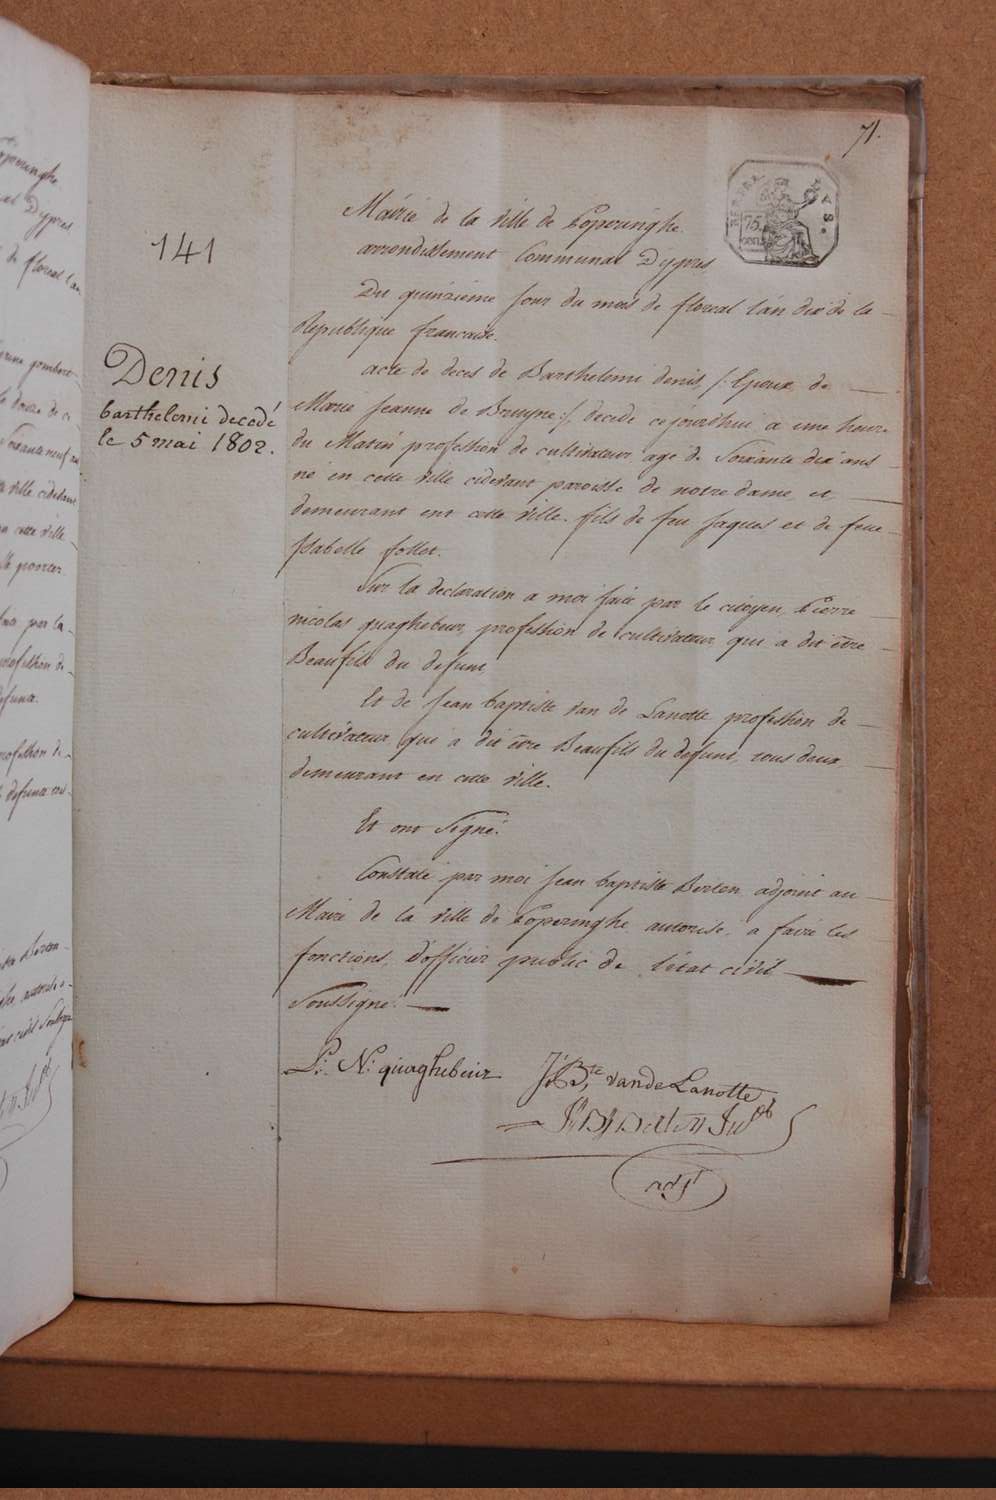 71.
REP. FRA.
75
cent
141
Mairie de la ville de Poperinghe
arrondissement Communal Dypres
Du quinzieme jour du mois de floreal l'an dix de la
Republique francaise.
acte de deces de Barthelemi denis, /: Epoux de
Marie Jeanne de Bruyne :/ decede cejourdhui a une heure
du Matin profession de cultivateur agé de Soixante dix ans
né en cette ville cidevant paroisse de notre dame et
demeurant ent cette ville. fils de feu Jaques et de feue
Isabelle follet.
Sur la declaration a moi faite par le citoyen Pierre
nicolas quaghebeur profession de cultivateur qui a dit être
Beaufils du defunt,
Et de Jean baptiste van de Lanotte profession de
cultivateur qui a dit être Beaufils du defunt, tous deux
demeurant en cette ville.
Et ont Signé.
Constaté par moi Jean baptiste Berten adjoint au
Maire de la ville de Poperinghe autorisé a faire les
fonctions d'officier public de l'état civil
Soussigné.
Denis
barthelemi decedé
le 5 mai 1802.
P: N: quaghebeur
J: B:te vande Lanotte
adjt